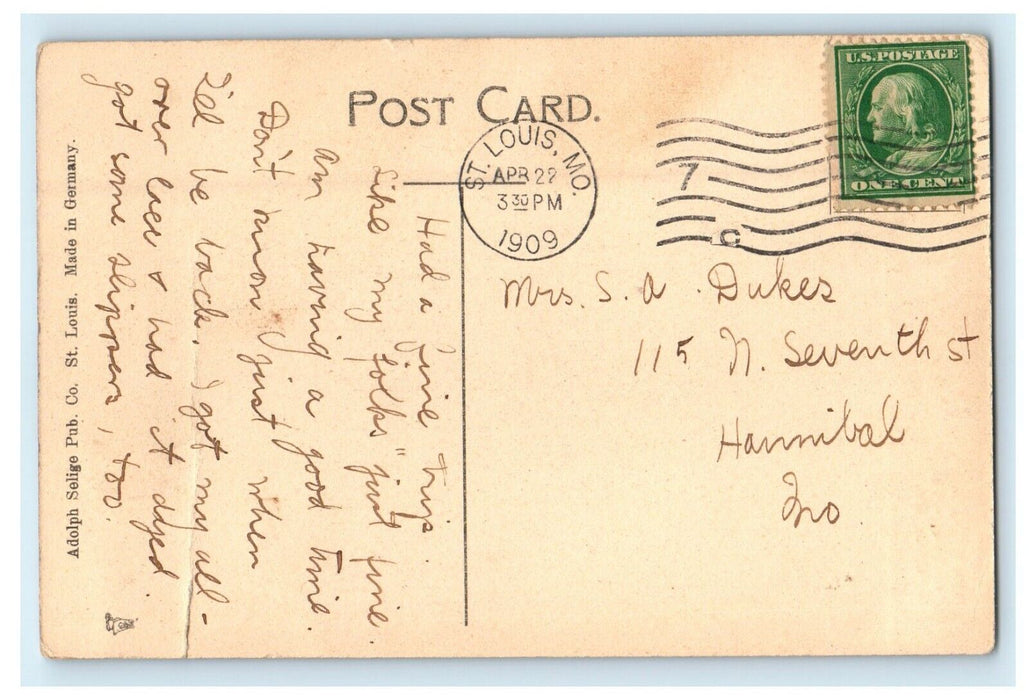 POST CARD.
U.S. POSTAGE
ONE CENT
ST. LOUIS, MO.
APR 22
3 30 PM
1909
7
C
Mrs. S. A. Dukes
115 N. Seventh St
Hannibal
Mo
Had a fine trip.
Like my "folks" just fine.
Am having a good time.
Don't know just when
I'll be back. I got my all-
over lace & had it dyed.
got some slippers, too.
Adolph Selige Pub. Co. St. Louis. Made in Germany.